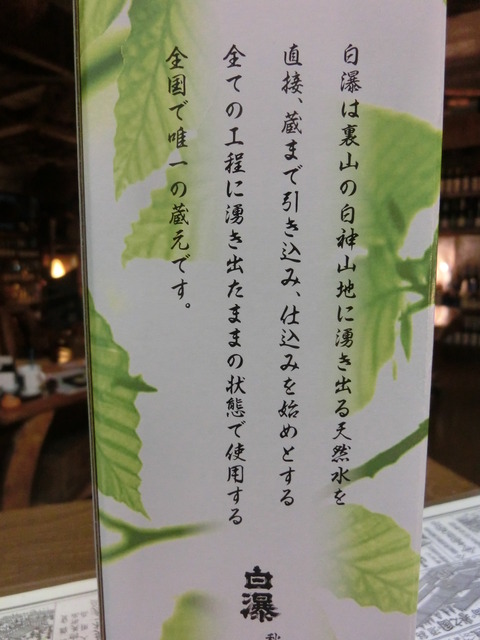 白瀑は裏山の白神山地に湧き出る天然水を
直接、蔵まで引き込み、仕込みを始めとする
全ての工程に湧き出たままの状態で使用する
全国で唯一の蔵元です。
白瀑
秋